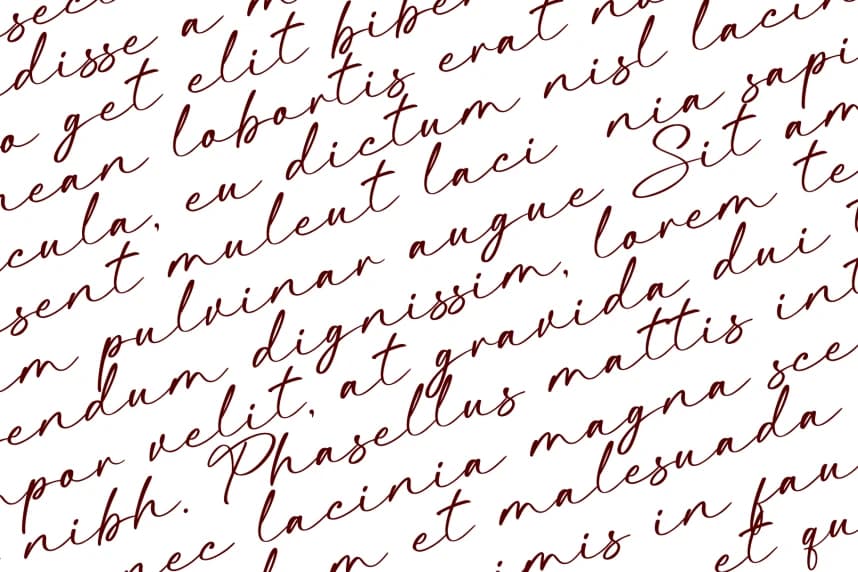 sec
disse a m
o get elit bibe
nean lobortis erat nu
cula, eu dictum nisl lacin
sent muleut laci nia sapi
m pulvinar augue Sit am
endum dignissim, lorem te
por velit, at gravida dui t
nibh. Phasellus mattis int
nec lacinia magna sce
m et malesuada
imis in fau
et qu